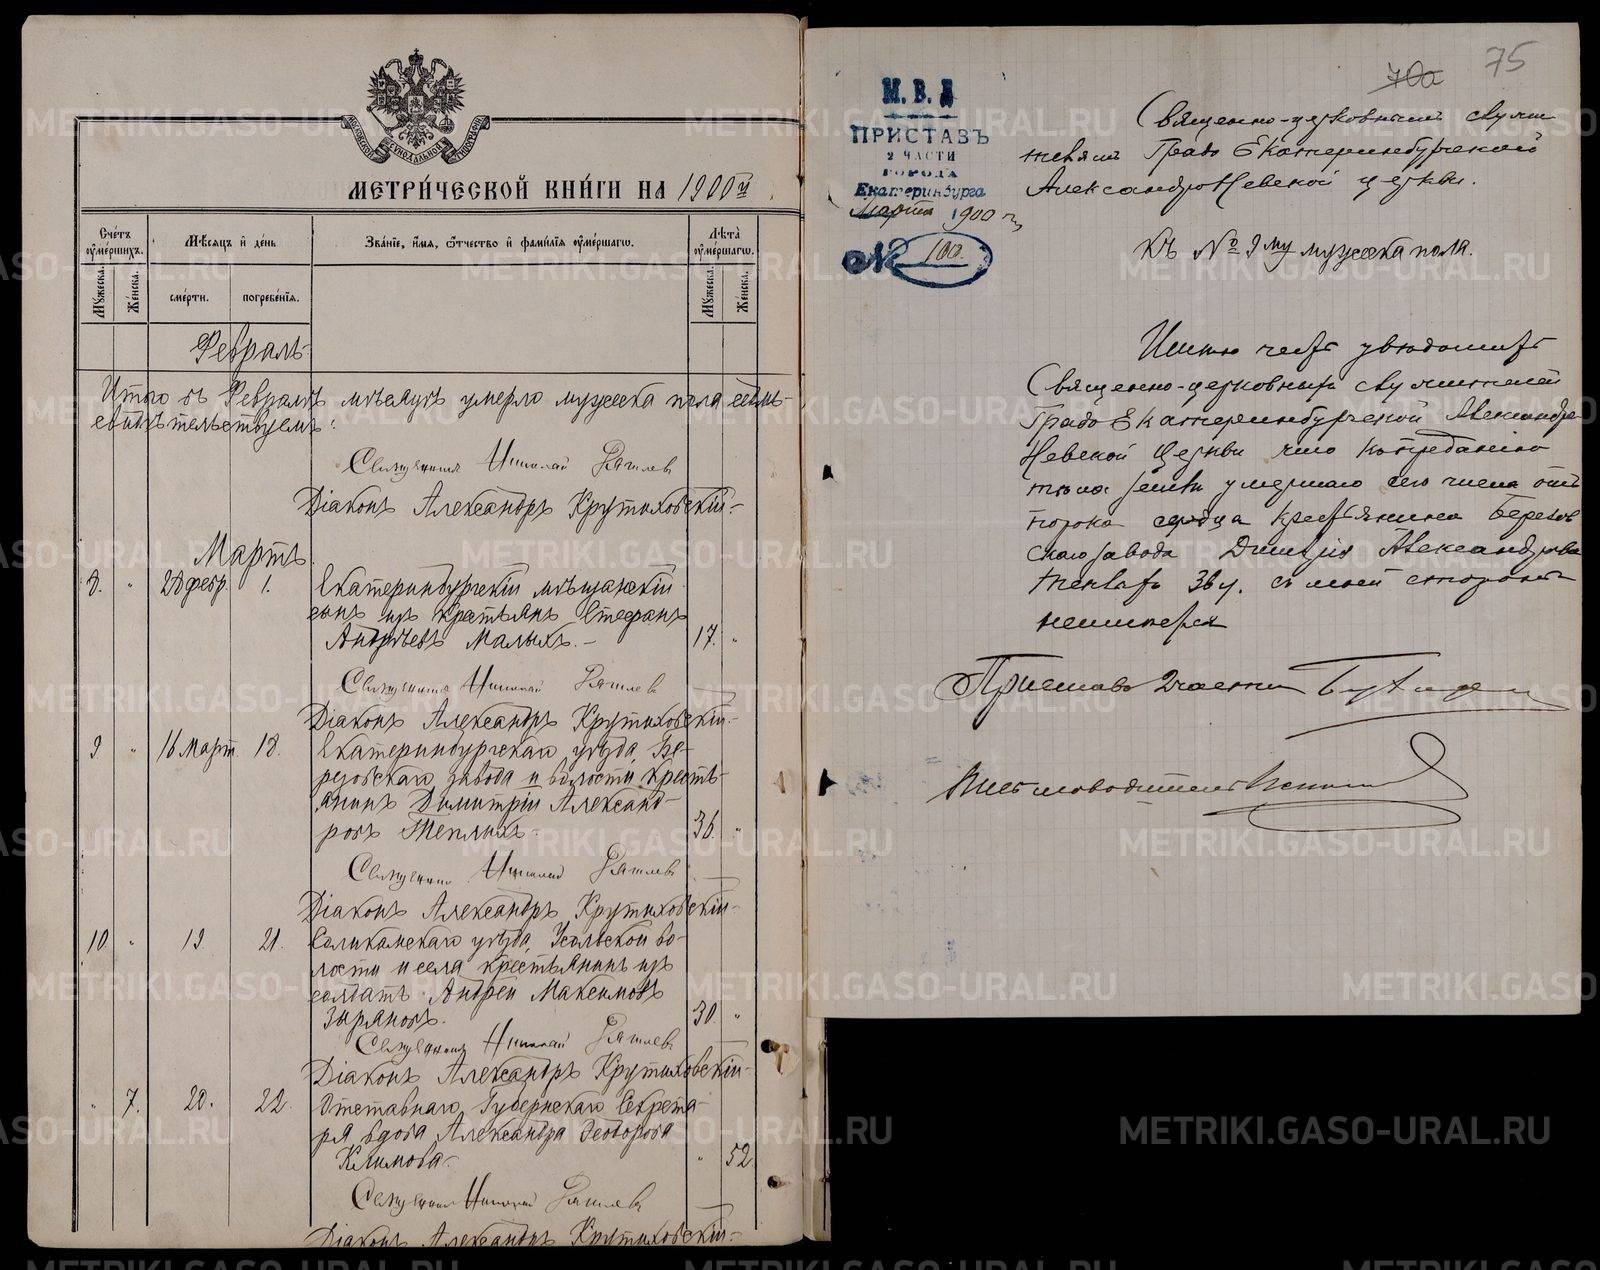 МЕТРИ́ЧЕСКОЙ КНИ́ГИ НА 1900 й
Сче́тъ ᲂу҆ме́ршихъ.
Мꙋ́жеска.
Же́нска.
Мѣ́сяцъ и҆ де́нь
сме́рти.
погребе́нїѧ.
Зва́нїе, и҆́мѧ, ѻ҆́тчество и҆ фами́лїѧ ᲂу҆ме́ршагѡ.
Лѣ́та ᲂу҆ме́ршагѡ.
Мꙋ́жеска.
Же́нска.
Февраль
Итого въ Февралѣ мѣсяцѣ умерло мужеска пола семь-
свидѣтельствуемъ:
Священникъ Николай
Діаконъ Александръ Крутиховскій.-
Мартъ
8. " 28 февр. 1. Екатеринбургскій мѣщанскій
сынъ изъ крестьянъ Стефанъ
Андреевъ Малыхъ.- 17. "
Священникъ Николай
Діаконъ Александръ Крутиховскій.-
9 " 16 Март. 18. Екатеринбургскаго уѣзда, Бе-
резовскаго завода и волости кресть-
янинъ Димитрій Александ-
ровъ Теплыхъ.- 36. "
Священникъ Николай
Діаконъ Александръ Крутиховскій.-
10. " 19. 21. Соликамскаго уѣзда, Усольской во-
лости и села крестьянинъ изъ
солдатъ Андрей Максимовъ
Зыряновъ. 30. "
Священникъ Николай
Діаконъ Александръ Крутиховскій.-
" 7. 20. 22. Отставнаго Губернскаго Секрета-
ря вдова Александра Ѳеодорова
Климова.- " 52.
Священникъ Николай
Діаконъ Александръ Крутиховскій.-
70а 75
М. В. Д
ПРИСТАВЪ
2 ЧАСТИ
ГОРОДА
Екатеринбурга
Марта 1900 г
№ 100.
Священно-церковнымъ служи
телямъ Градо Екатеринбургской
Александро Невской церкви.
Къ № 9му мужеска пола.
Имѣю честь увѣдомить
Священно-церковныхъ служителей
Градо Екатеринбургской Александро
Невской Церкви что къ преданію
тѣла земли умершаго сего числа отъ
порока сердца крестьянина Березов
скаго завода Дмитрія Александрова
36 л. съ моей стороны
Приставъ 2 части
Письмоводитель
METRIKI.GASO-URAL.RU